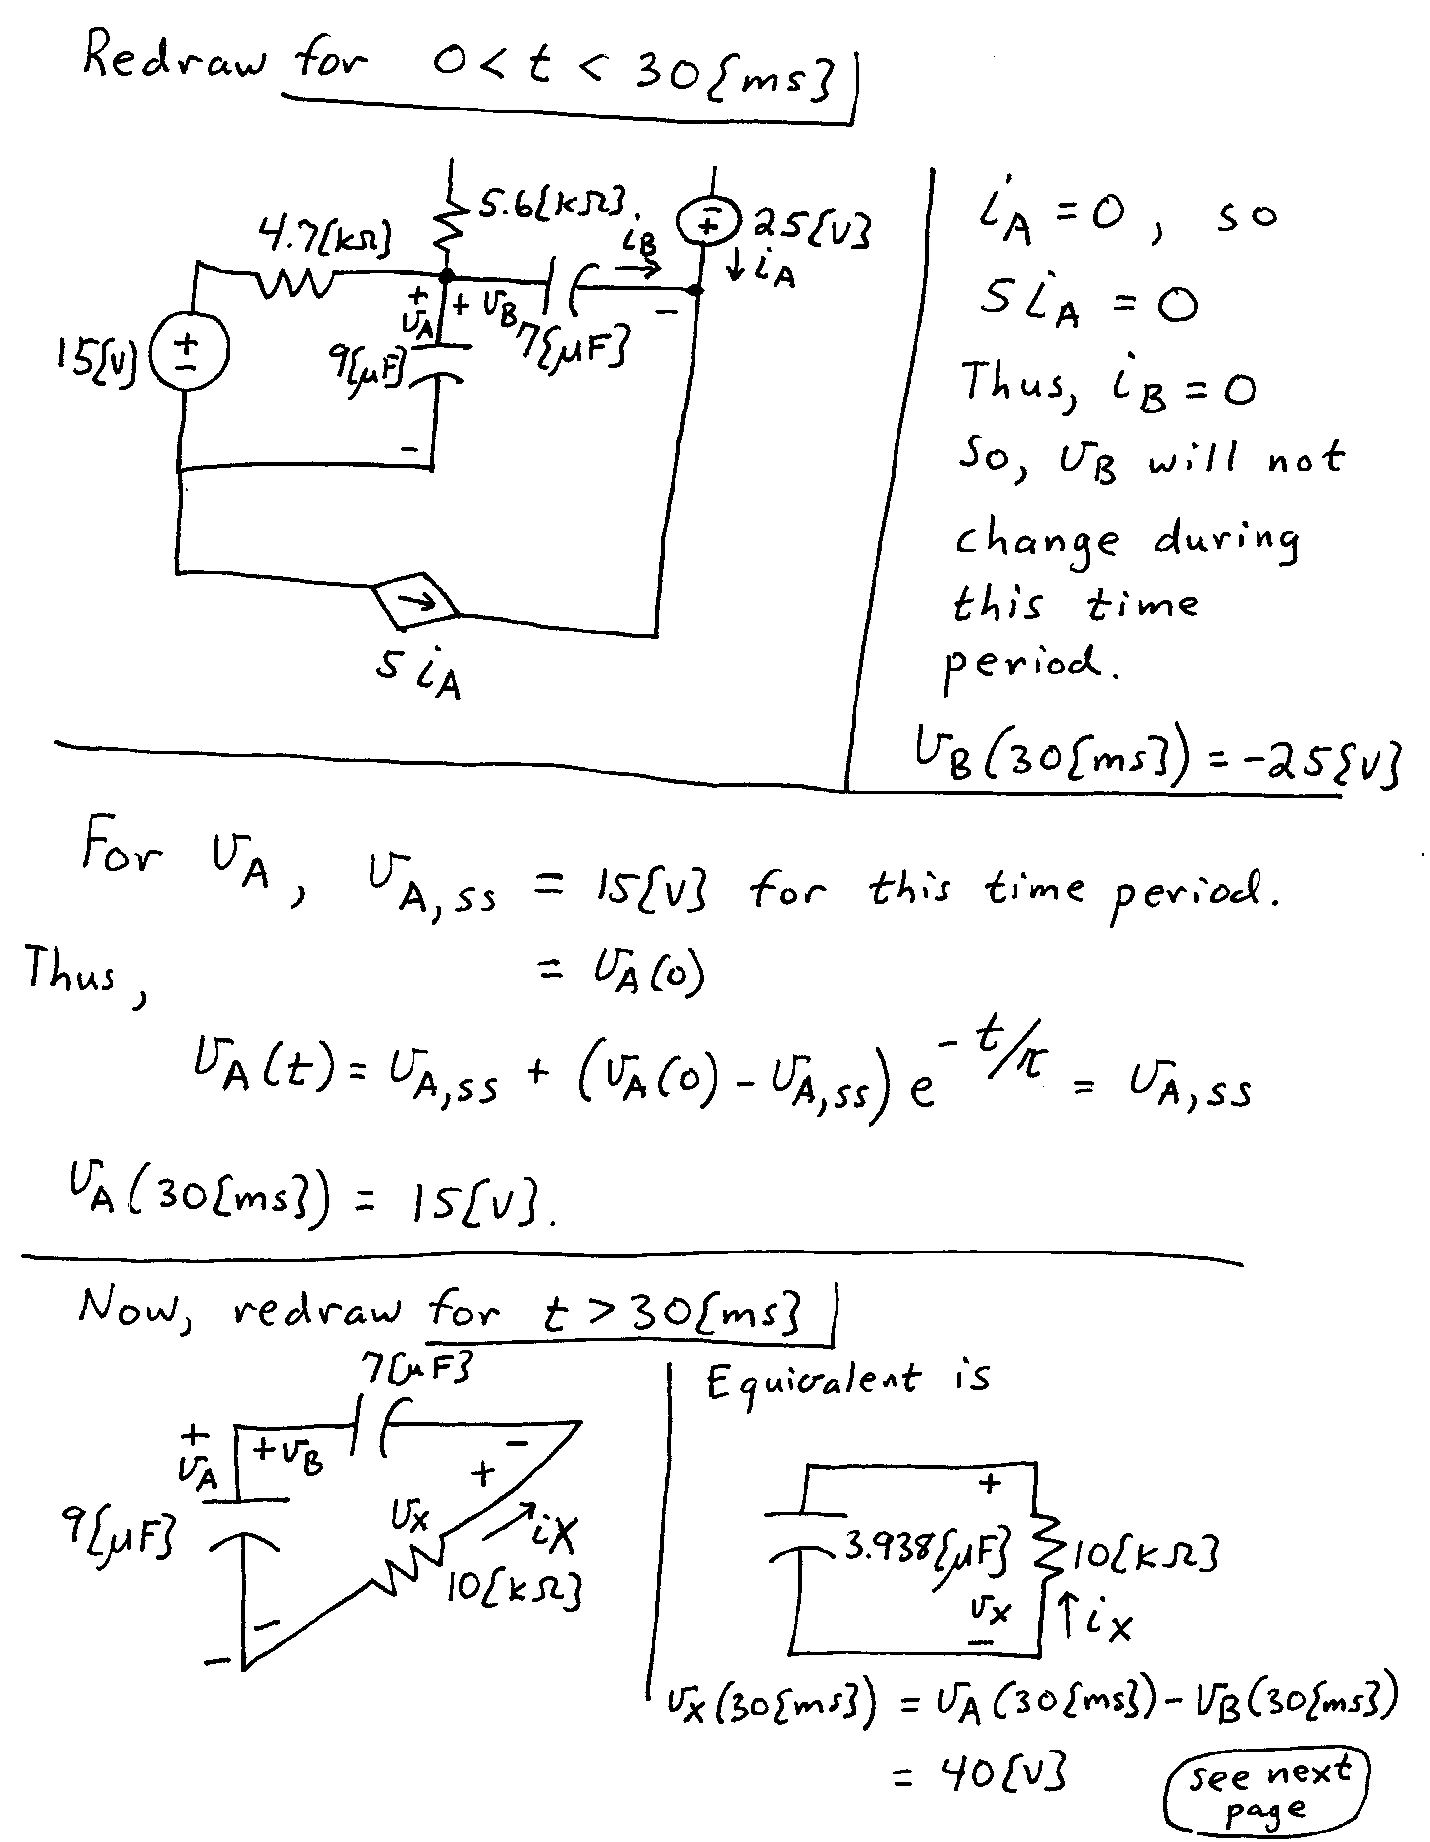 Redraw for 0 < t < 30{ms}
5.6[kΩ]
4.7[kΩ]
iB
25[V]
iA
+ -
+ vB -
vA
15[V]
9[μF]
7[μF]
-
5 iA
iA = 0, so
5 iA = 0
Thus, iB = 0
So, vB will not
change during
this time
period.
vB(30[ms]) = -25[V]
For vA, vA,ss = 15[V] for this time period.
Thus, = vA(0)
vA(t) = vA,ss + (vA(0) - vA,ss) e^-t/τ = vA,ss
vA(30[ms]) = 15[V].
Now, redraw for t > 30[ms]
7[μF]
+ + vB -
vA
+
vX
iX
9[μF]
10[kΩ]
- -
Equivalent is
+
3.938[μF]
10[kΩ]
vX
iX
-
vX(30[ms]) = vA(30[ms]) - vB(30[ms])
= 40[V]
see next
page